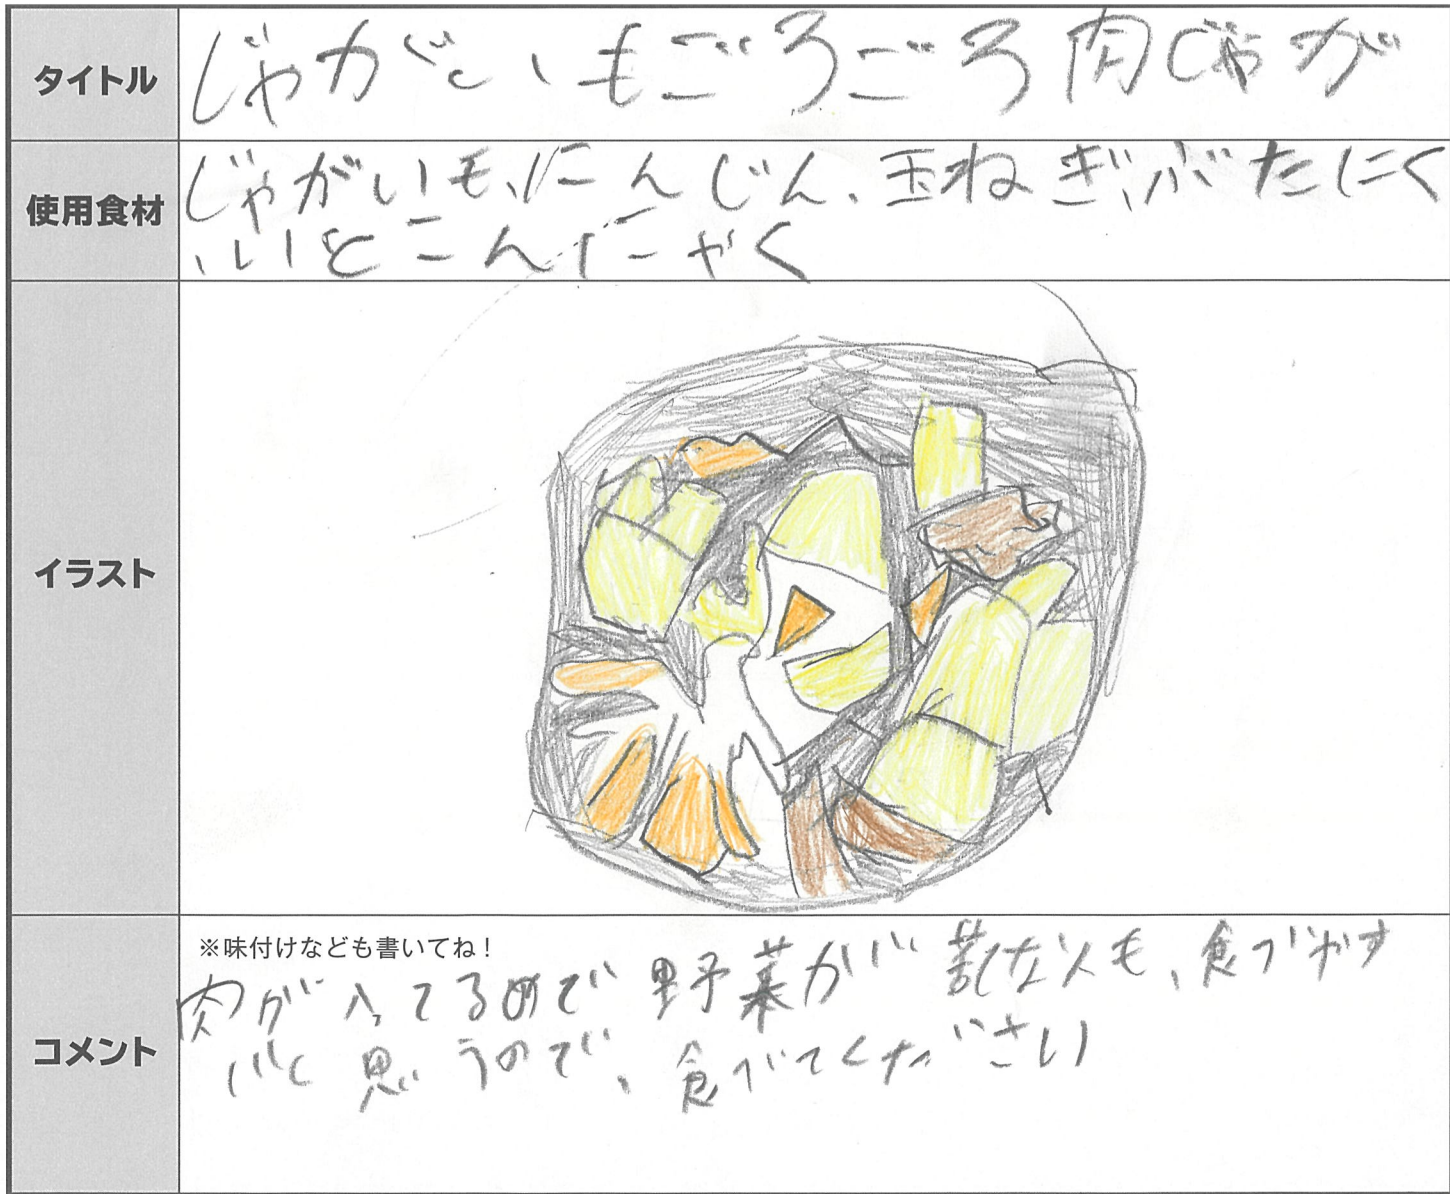 タイトル
じゃがいもごろごろ肉じゃが
使用食材
じゃがいも、にんじん、玉ねぎ、ぶたにく
、いとこんにゃく
イラスト
コメント
※味付けなども書いてね！
肉が入ってるので野菜が苦な人も、食べやす
いと思うので、食べてください